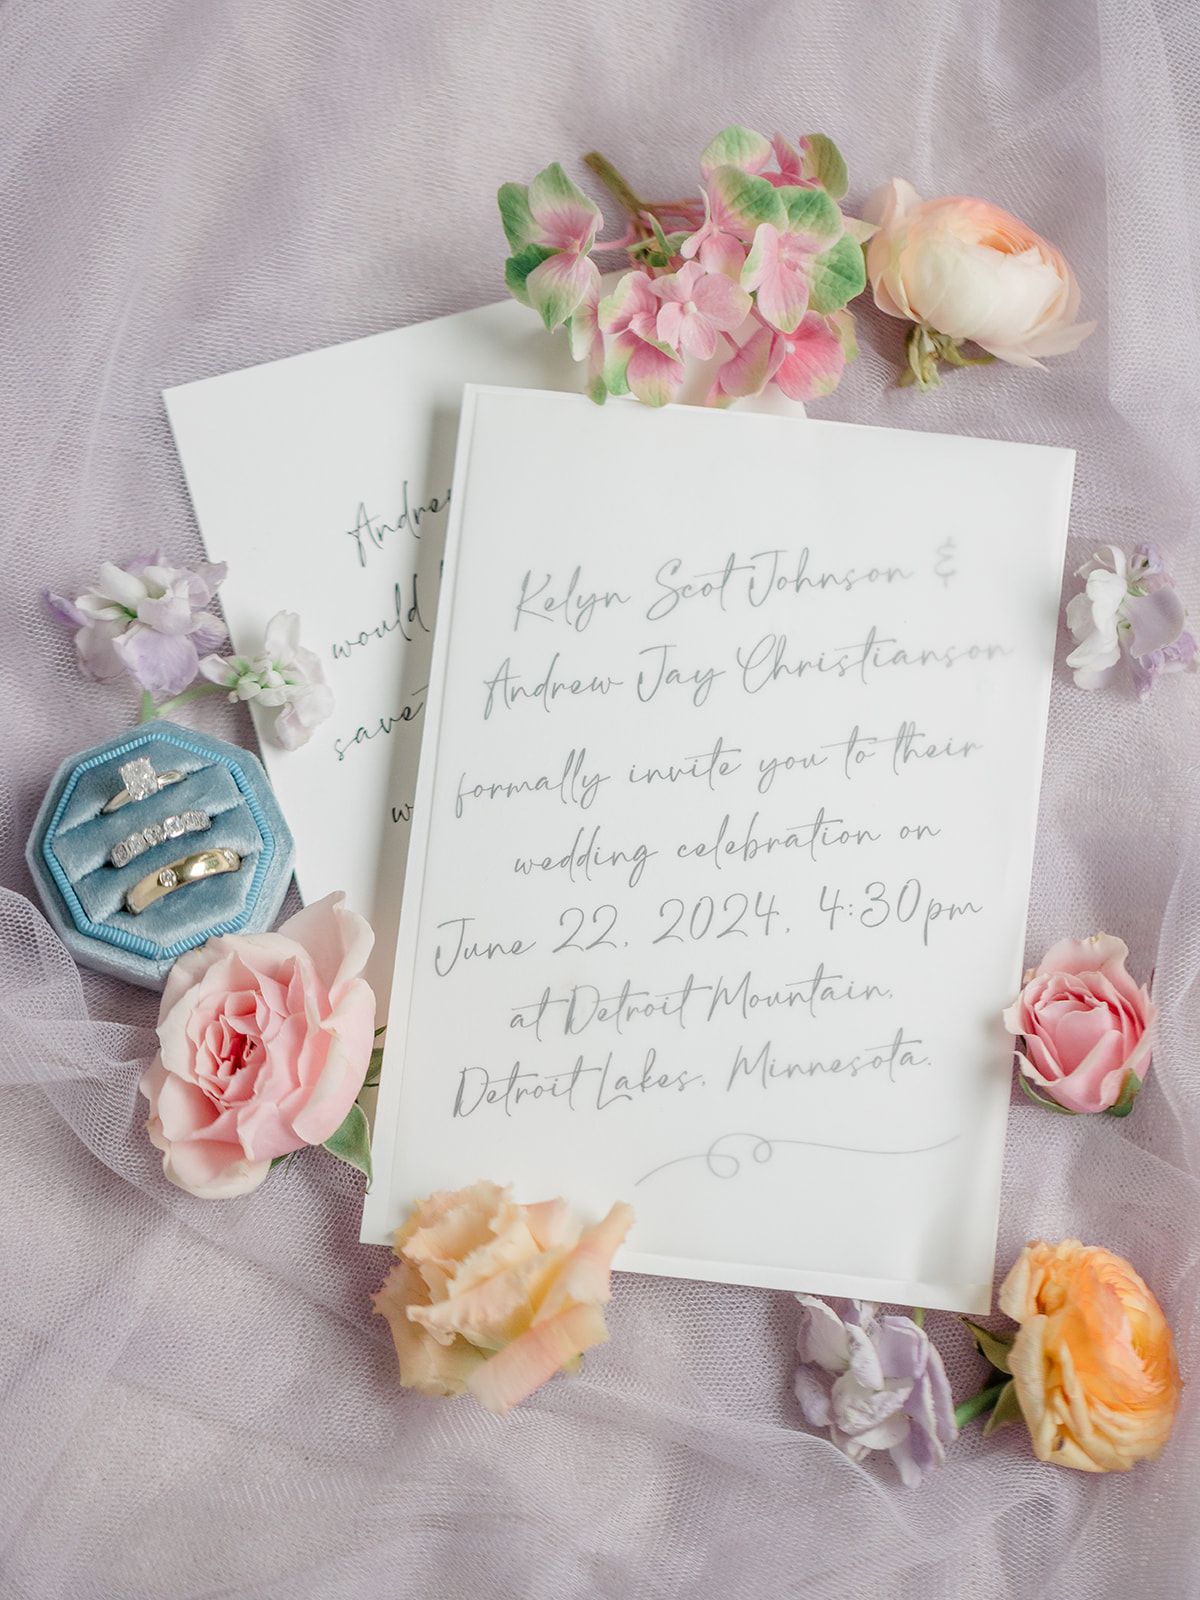 Andre
would
save
w
Kelyn Scot Johnson &
Andrew Jay Christianson
formally invite you to their
wedding celebration on
June 22, 2024, 4:30pm
at Detroit Mountain,
Detroit Lakes, Minnesota.